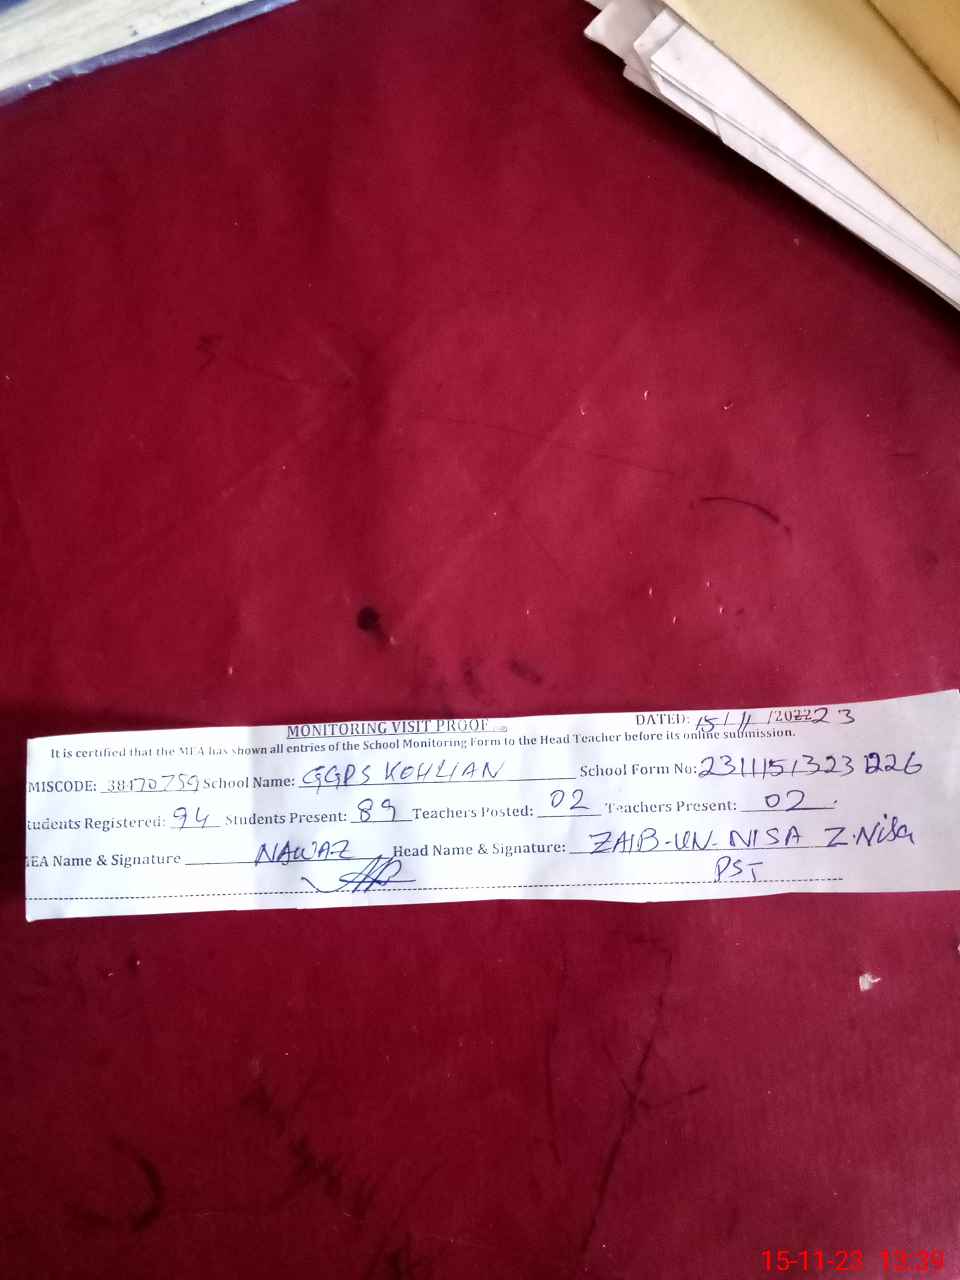 MONITORING VISIT PROOF
DATED: 15/11/202223
It is certified that the MEA has shown all entries of the School Monitoring Form to the Head Teacher before its online submission.
MISCODE: 38170759 School Name: GGPS KOHLIAN School Form No: 23111513231226
tudents Registered: 94 Students Present: 89 Teachers Posted: 02 Teachers Present: 02
MEA Name & Signature NAWAZ Head Name & Signature: ZAIB-UN-NISA Z.Nisa
PST
15-11-23 13:39